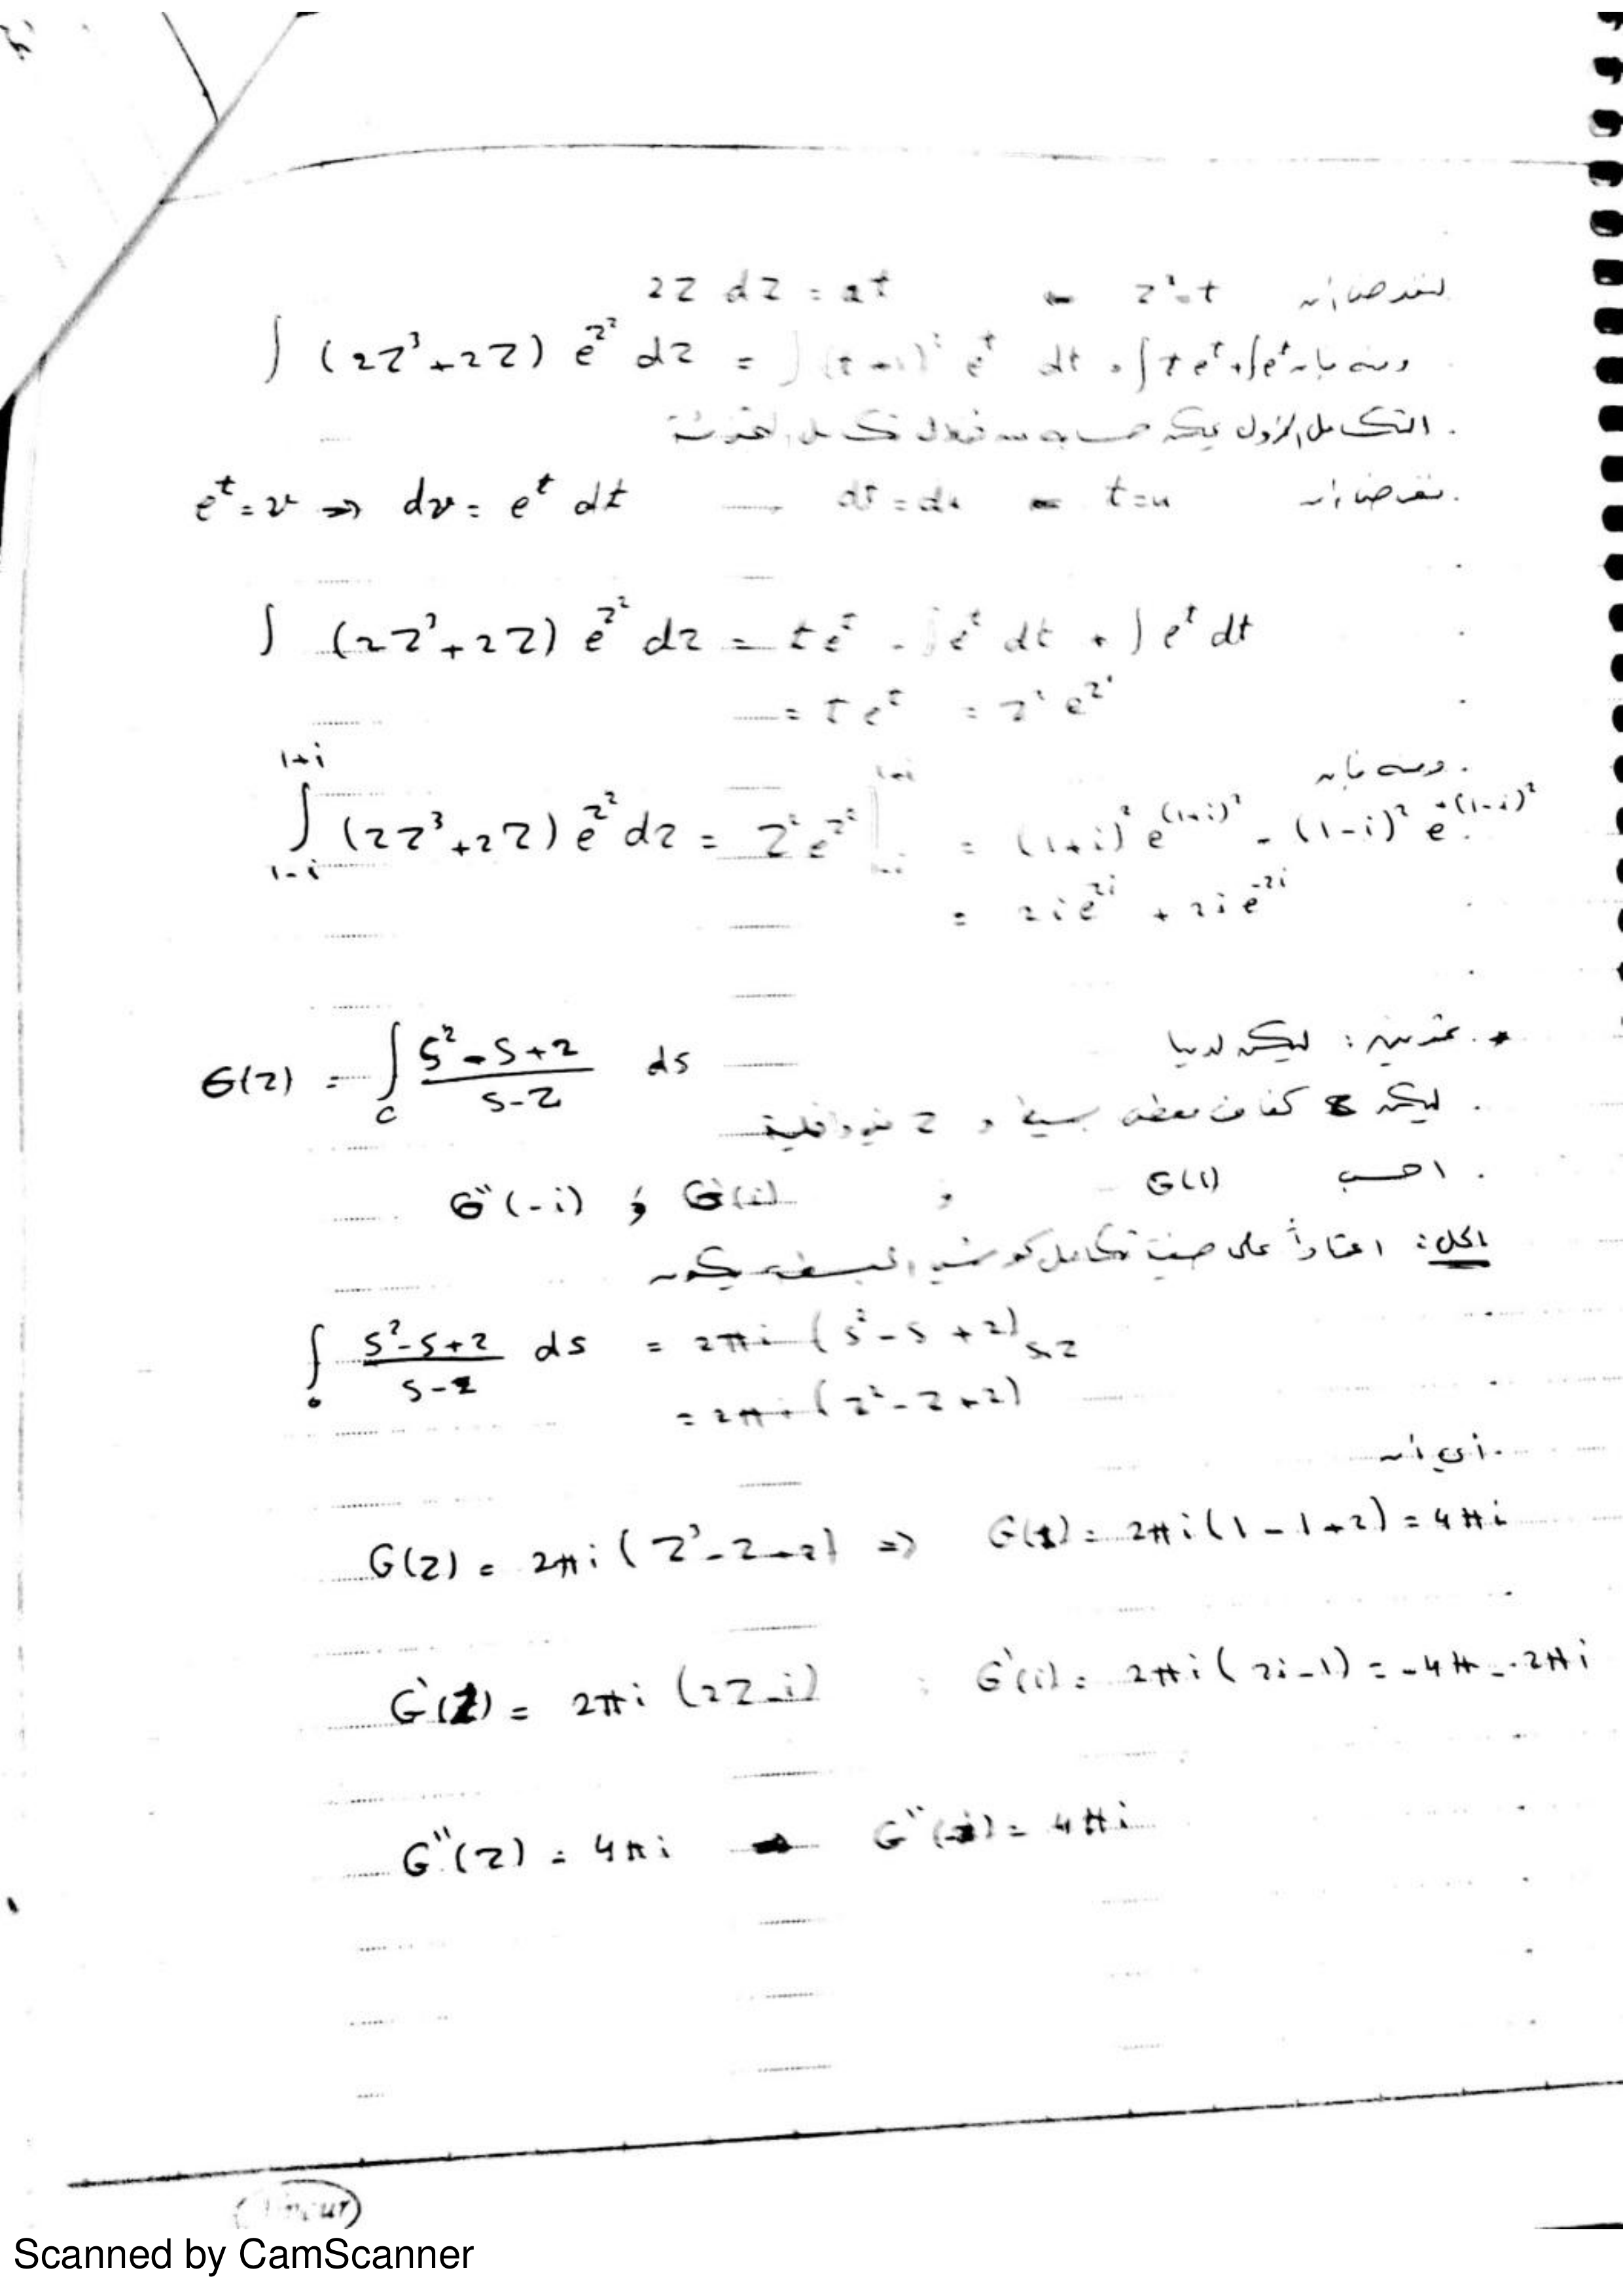 لنفرض أن z² = t ⇐ 2z dz = dt
ومنه فإن ∫ (2z³+2z) e^{z²} dz = ∫ (t+1) e^t dt = ∫ t e^t + ∫ e^t
التكامل الأول يمكن حسابه من خلال التكامل بالتجزئة
نفرض أن t = u ⇐ dt = du e^t = v ⇒ dv = e^t dt
∫ (2z³+2z) e^{z²} dz = t e^t - ∫ e^t dt + ∫ e^t dt
= t e^t = z² e^{z²}
ومنه فإن
∫_{1-i}^{1+i} (2z³+2z) e^{z²} dz = z² e^{z²} |_{1-i}^{1+i} = (1+i)² e^{(1+i)²} - (1-i)² e^{(1-i)²}
= 2i e^{2i} + 2i e^{-2i}
تمرين: ليكن لدينا G(z) = ∫_C \frac{s²-s+2}{s-z} ds
ليكن كفاف مغلق بسيط و z نقطة داخلية
احسب G(1) , G'(i) و G''(-i)
الحل: اعتماداً على صيغة تكامل كوشي يكون
∫ \frac{s²-s+2}{s-z} ds = 2πi (s²-s+2)_{s=z}
= 2πi (z²-z+2)
أي أن
G(z) = 2πi (z²-z+2) ⇒ G(1) = 2πi(1-1+2) = 4πi
G'(z) = 2πi (2z-i) ; G'(i) = 2πi(2i-1) = -4π-2πi
G''(z) = 4πi ⇒ G''(-i) = 4πi
Scanned by CamScanner